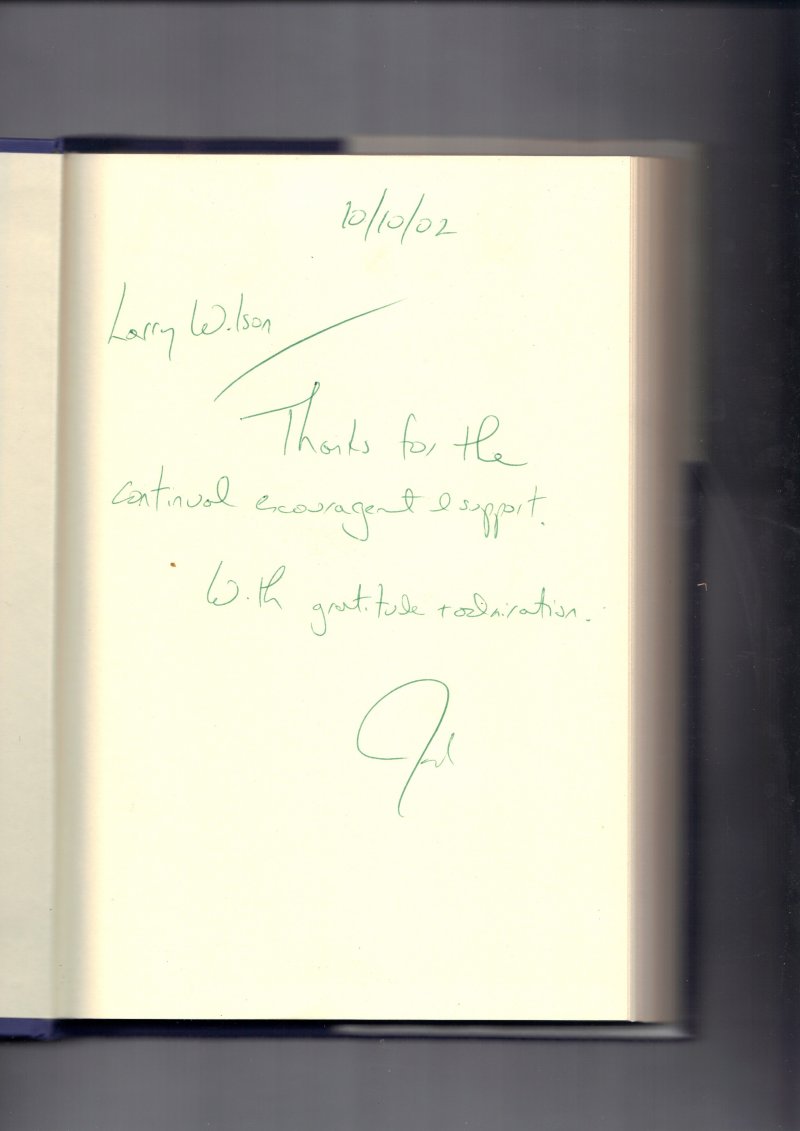 10/10/02
Larry Wilson
Thanks for the
continual encouragent & support.
With gratitude + admiration.